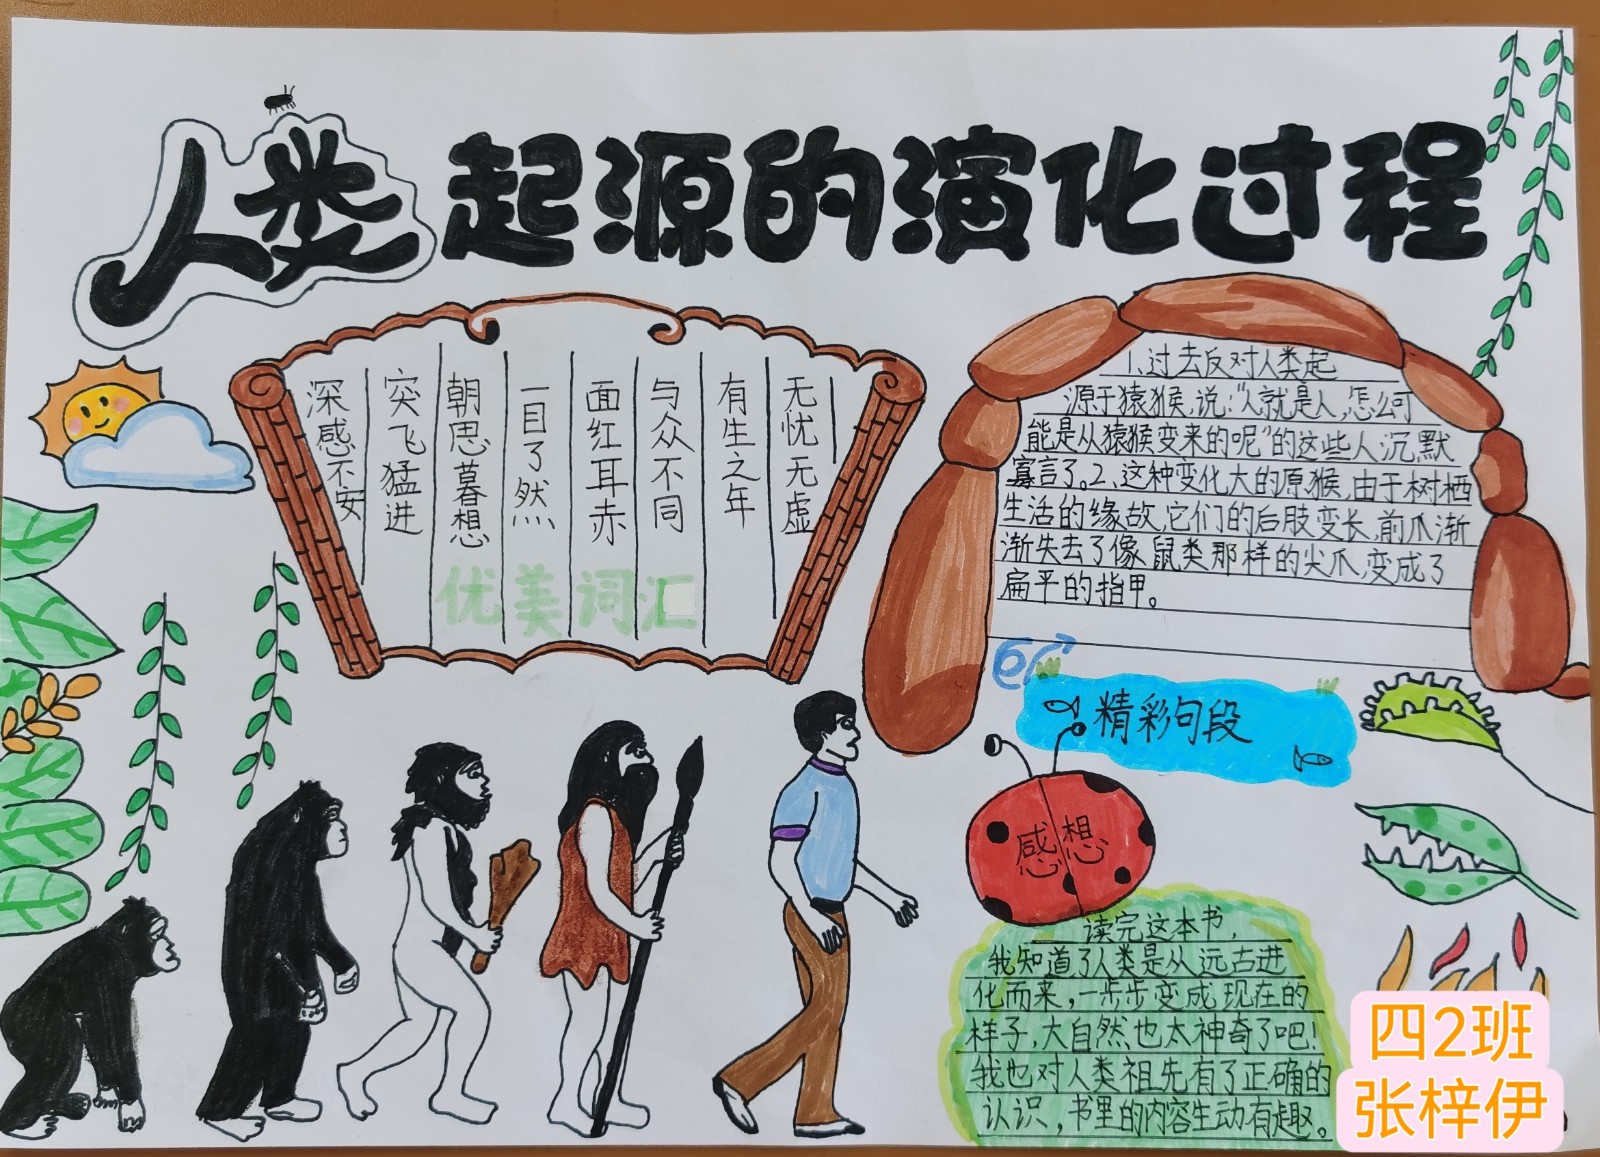 人类起源的演化过程
深感不安
突飞猛进
朝思暮想
一目了然
面红耳赤
与众不同
有生之年
无忧无虑
优美词汇
1、过去反对人类起
源于猿猴,说:“人就是人,怎么可
能是从猿猴变来的呢”的这些人沉默
寡言了。2、这种变化大的原猴,由于树栖
生活的缘故,它们的后肢变长,前爪渐
渐失去了像鼠类那样的尖爪,变成了
扁平的指甲。
精彩句段
感想
读完这本书,
我知道了人类是从远古进
化而来,一步步变成现在的
样子,大自然也太神奇了吧!
我也对人类祖先有了正确的
认识,书里的内容生动有趣。
四2班
张梓伊